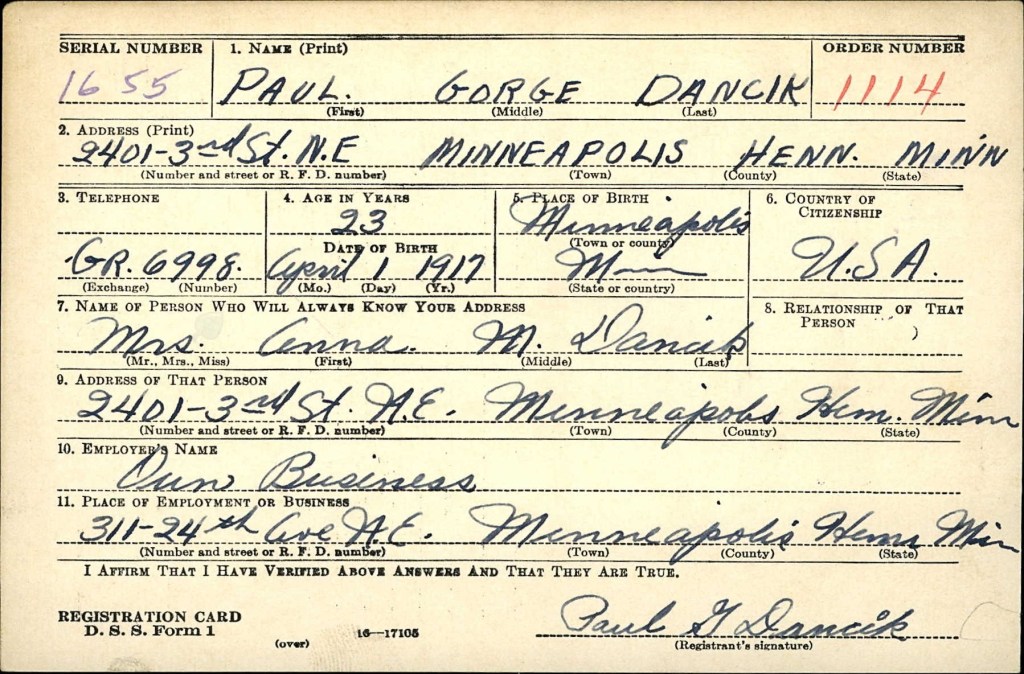 SERIAL NUMBER 1. NAME (Print) ORDER NUMBER
1655 PAUL. GORGE DANCIK 1114
(First) (Middle) (Last)
2. ADDRESS (Print)
2401-3rd St. N.E MINNEAPOLIS HENN. MINN
(Number and street or R. F. D. number) (Town) (County) (State)
3. TELEPHONE 4. AGE IN YEARS 5. PLACE OF BIRTH 6. COUNTRY OF CITIZENSHIP
23 Minneapolis
DATE OF BIRTH (Town or county)
GR. 6998. April 1 1917 Minn U.S.A.
(Exchange) (Number) (Mo.) (Day) (Yr.) (State or country)
7. NAME OF PERSON WHO WILL ALWAYS KNOW YOUR ADDRESS 8. RELATIONSHIP OF THAT PERSON
Mrs. Anna. M. Dancik
(Mr., Mrs., Miss) (First) (Middle) (Last)
9. ADDRESS OF THAT PERSON
2401-3rd St. N.E. Minneapolis Henn. Minn
(Number and street or R. F. D. number) (Town) (County) (State)
10. EMPLOYER'S NAME
Own Business
11. PLACE OF EMPLOYMENT OR BUSINESS
311-24th Ave N.E. Minneapolis Henn Minn
(Number and street or R. F. D. number) (Town) (County) (State)
I AFFIRM THAT I HAVE VERIFIED ABOVE ANSWERS AND THAT THEY ARE TRUE.
REGISTRATION CARD
D. S. S. Form 1 (over) 16—17105 Paul G Dancik
(Registrant's signature)